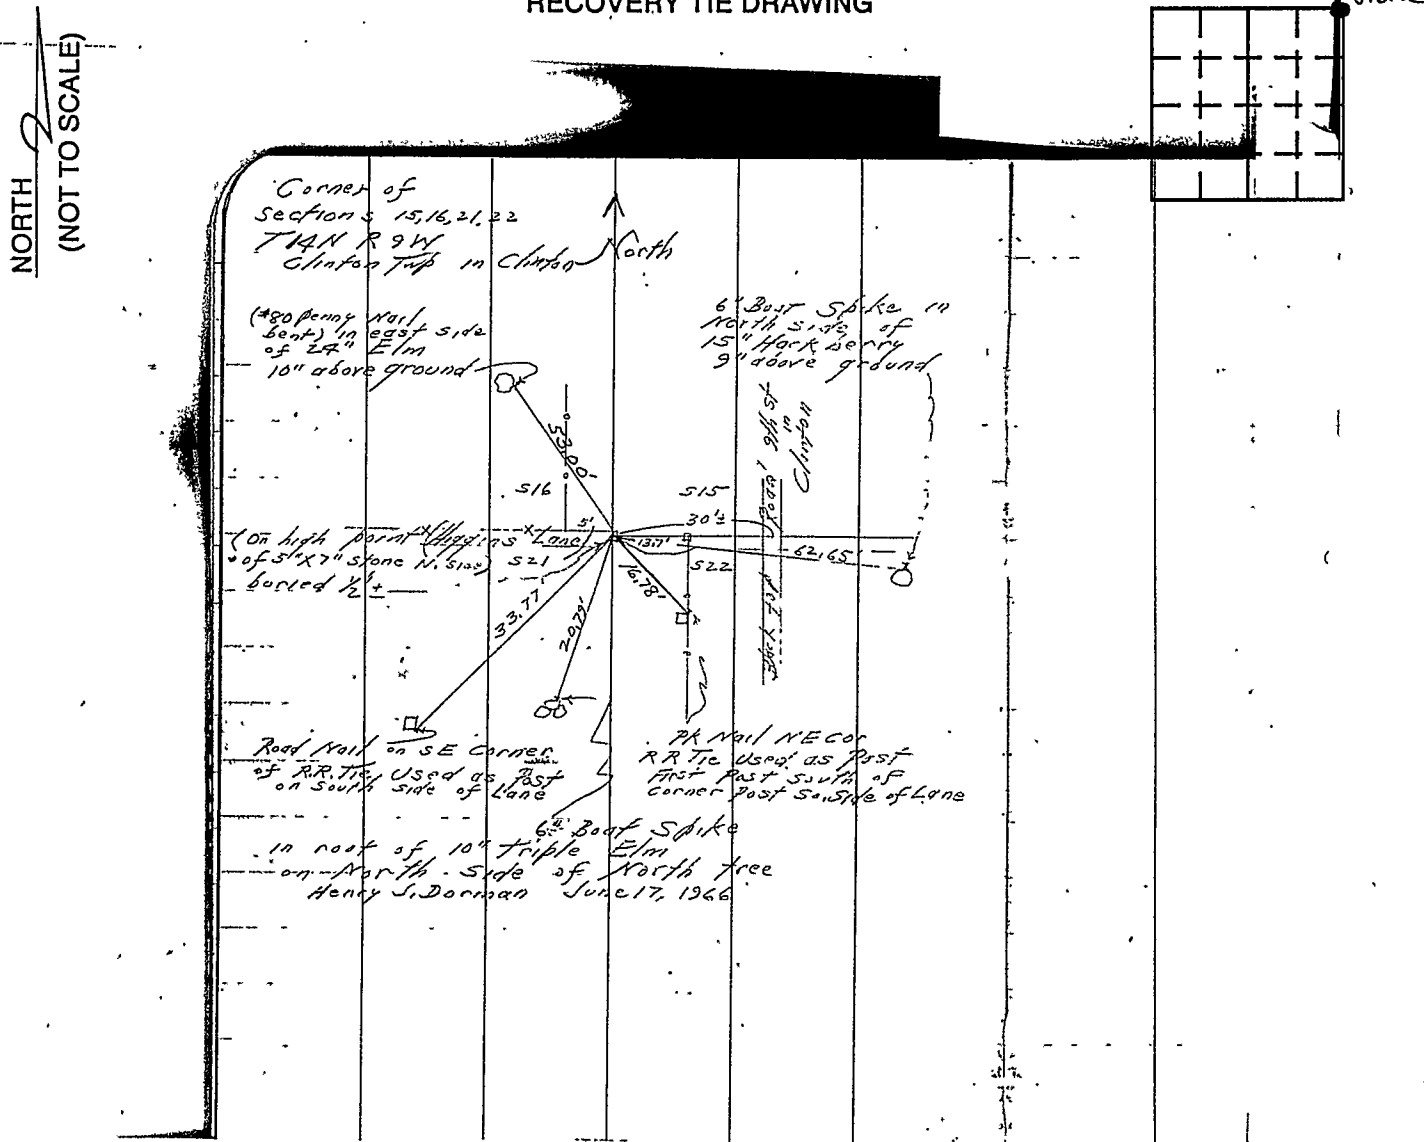 RECOVERY TIE DRAWING
NORTH
(NOT TO SCALE)
Corner of
Sections 15,16,21,22
T14N R9W
Clinton Twp in Clinton
North
(#80 penny Nail
bent) in east side
of 24" Elm
10" above ground
6" Boat Spike in
North side of
15" Hackberry
9" above ground
53.00'
S16
S15
5'
30'±
13.7'
62.65'
(On high point Higgins Lane
of 5"x7" stone N. side)
buried ½'±
S21
S22
16.78'
33.77'
20.79'
Clinton
in
4th St
Road
Black top
Road Nail on SE Corner
of R.R. Tie Used as Post
on South side of Lane
PK Nail NE Cor
RR Tie Used as Post
First Post South of
Corner Post So. Side of Lane
6" Boat Spike
in root of 10" Triple Elm
on North side of North tree
Henry S. Dorman June 17, 1966